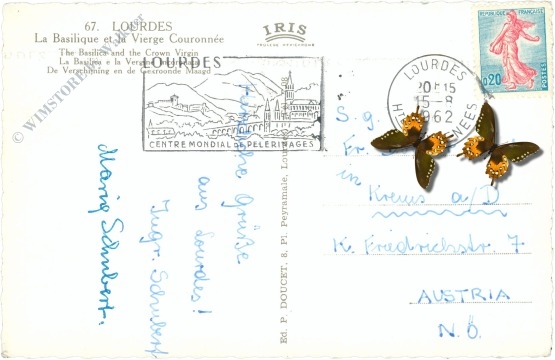 67. LOURDES
La Basilique et la Vierge Couronnée
The Basilica and the Crown Virgin
La Basilica e la Vergine
De Verschijning en de Gekroonde Maagd
IRIS
© WIMSTORE
LOURDES
CENTRE MONDIAL DE PELERINAGES
LOURDES
20H15
15-8
1962
REPUBLIQUE FRANÇAISE
0,20
POSTES
Grüße
aus Lourdes!
Ingr. Schubert
Maria Schubert.
Ed. P. DOUCET, 8, Pl. Peyramale, Lourdes
S. g.
Fr
in
Krems a/D
K. Friedrichstr. 7
AUSTRIA
N.Ö.